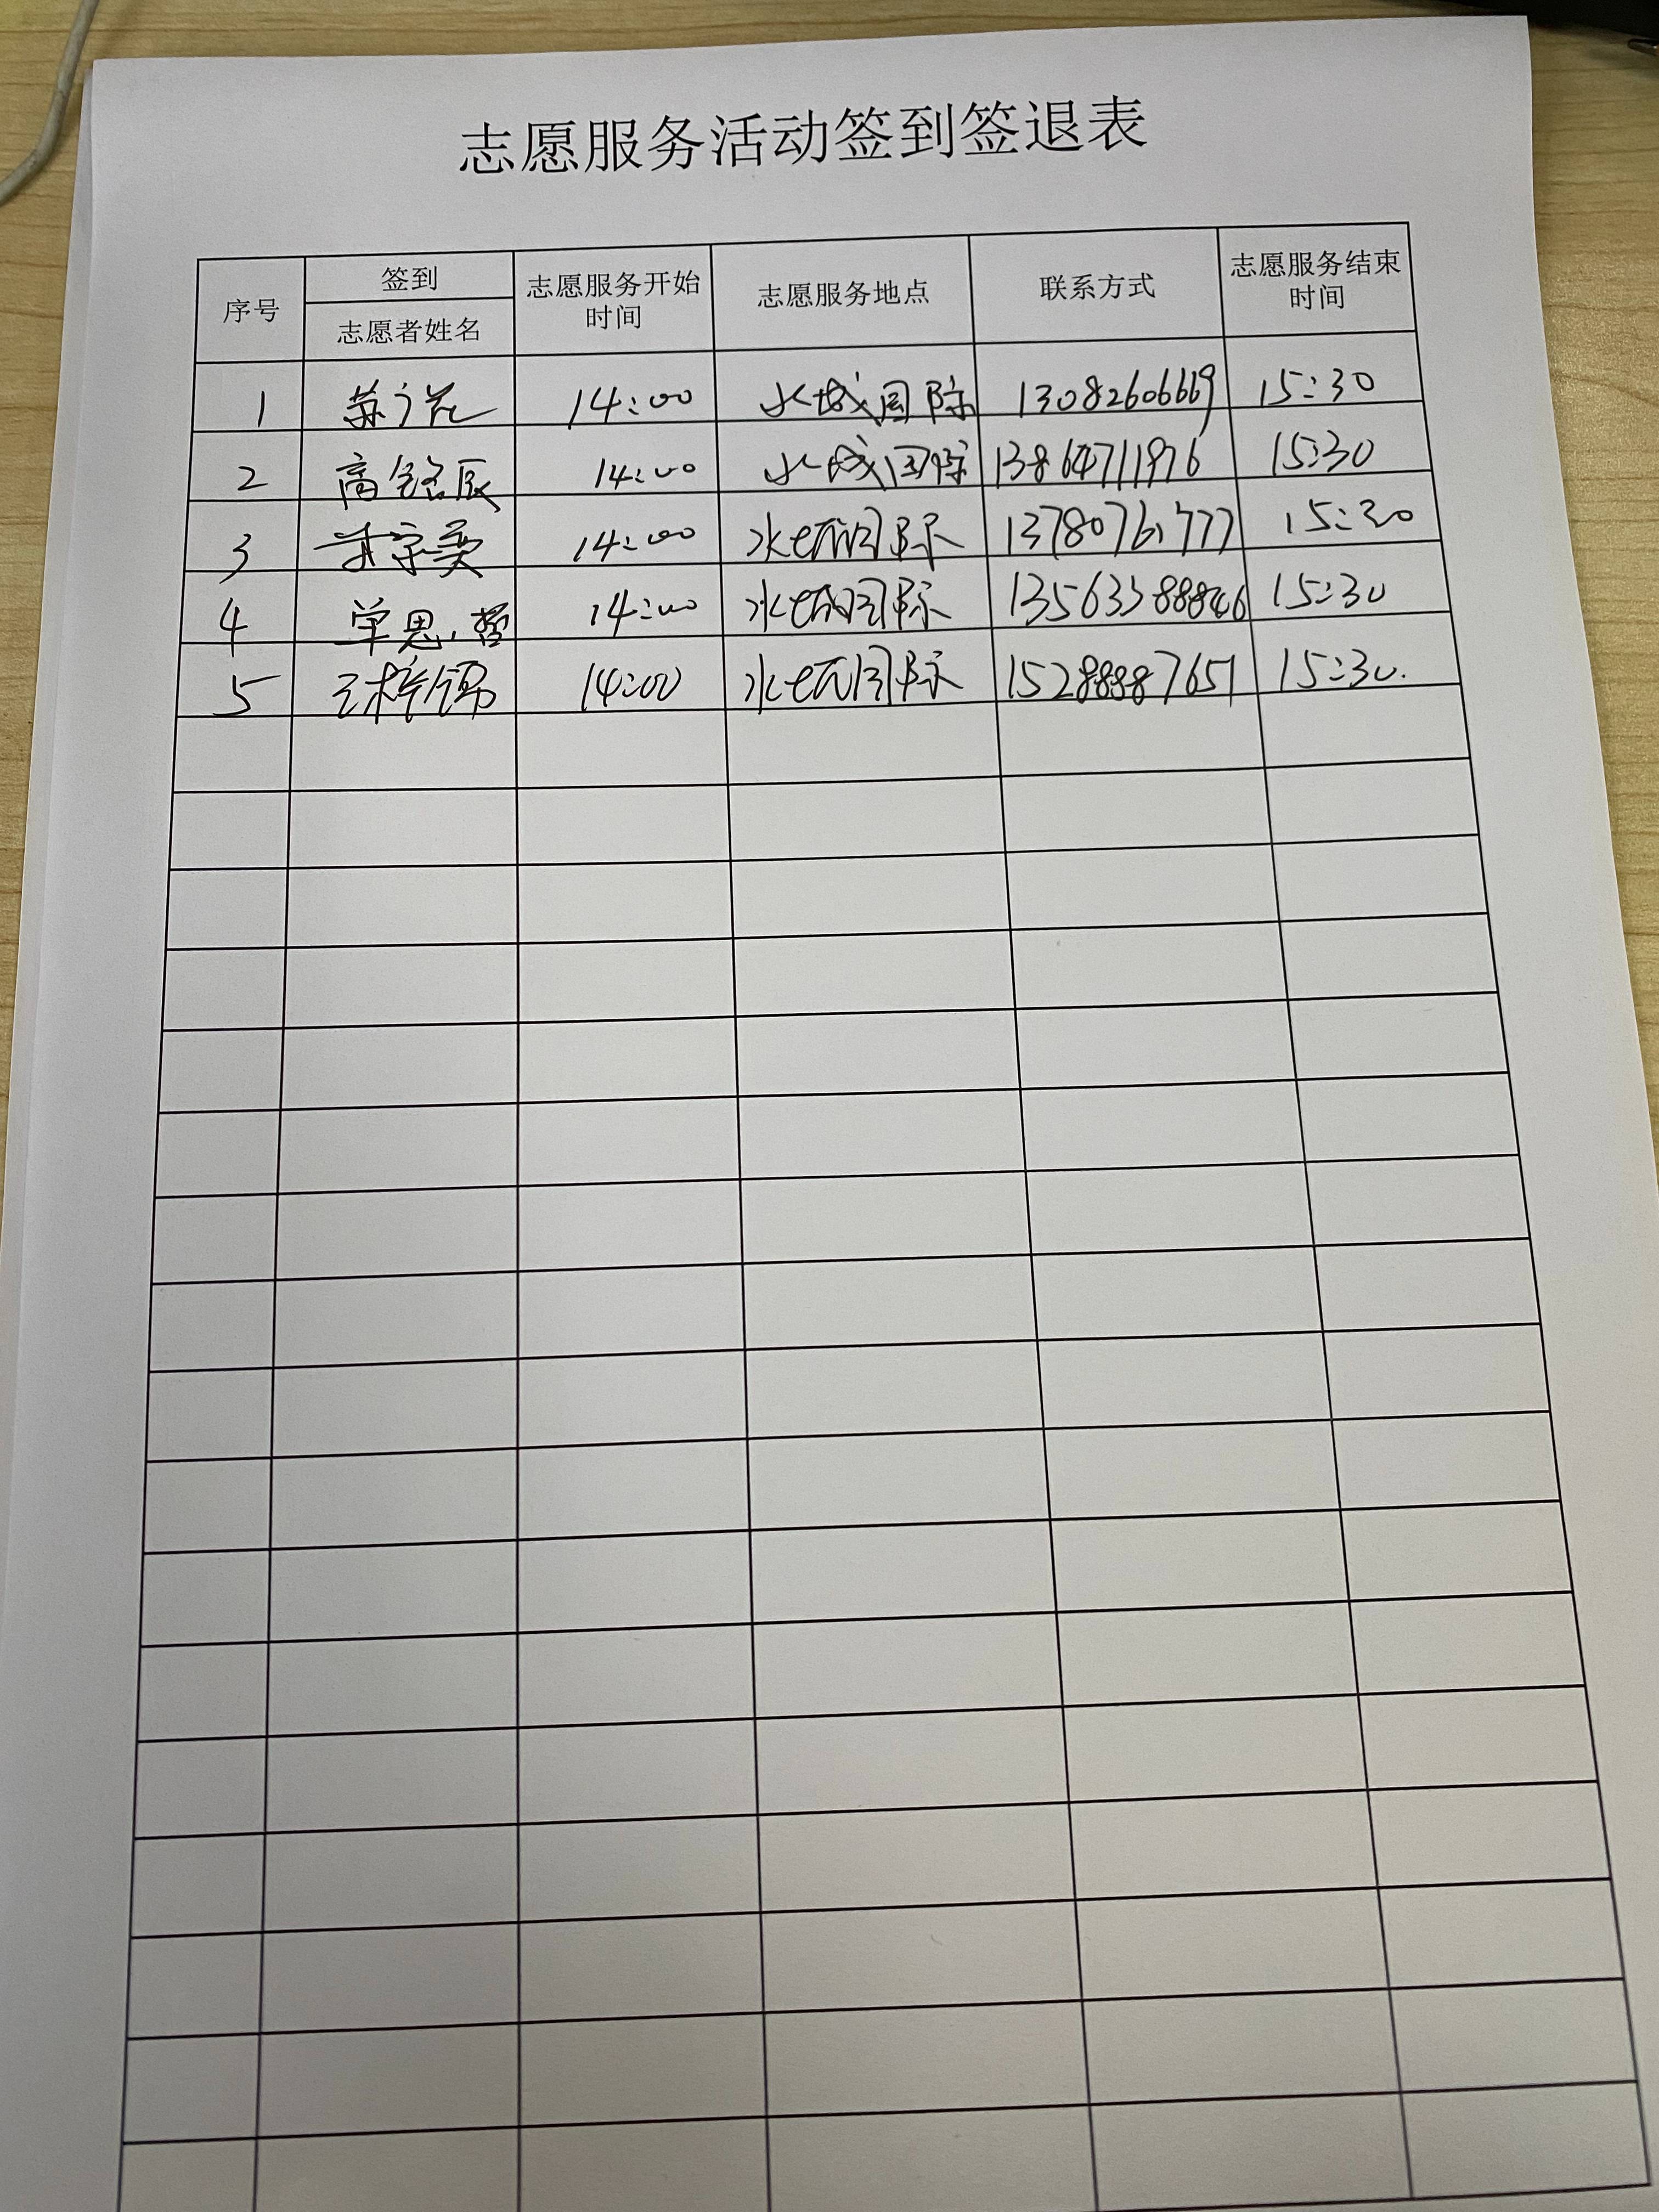 志愿服务活动签到签退表
序号 签到 志愿者姓名 志愿服务开始时间 志愿服务地点 联系方式 志愿服务结束时间
1 14:00 水城国际 13082606669 15:30
2 高铭辰 14:00 水城国际 13864711976 15:30
3 14:00 水城国际 13780761777 15:30
4 单思哲 14:00 水城国际 15:30
5 王梓锦 14:00 水城国际 15288887651 15:30.